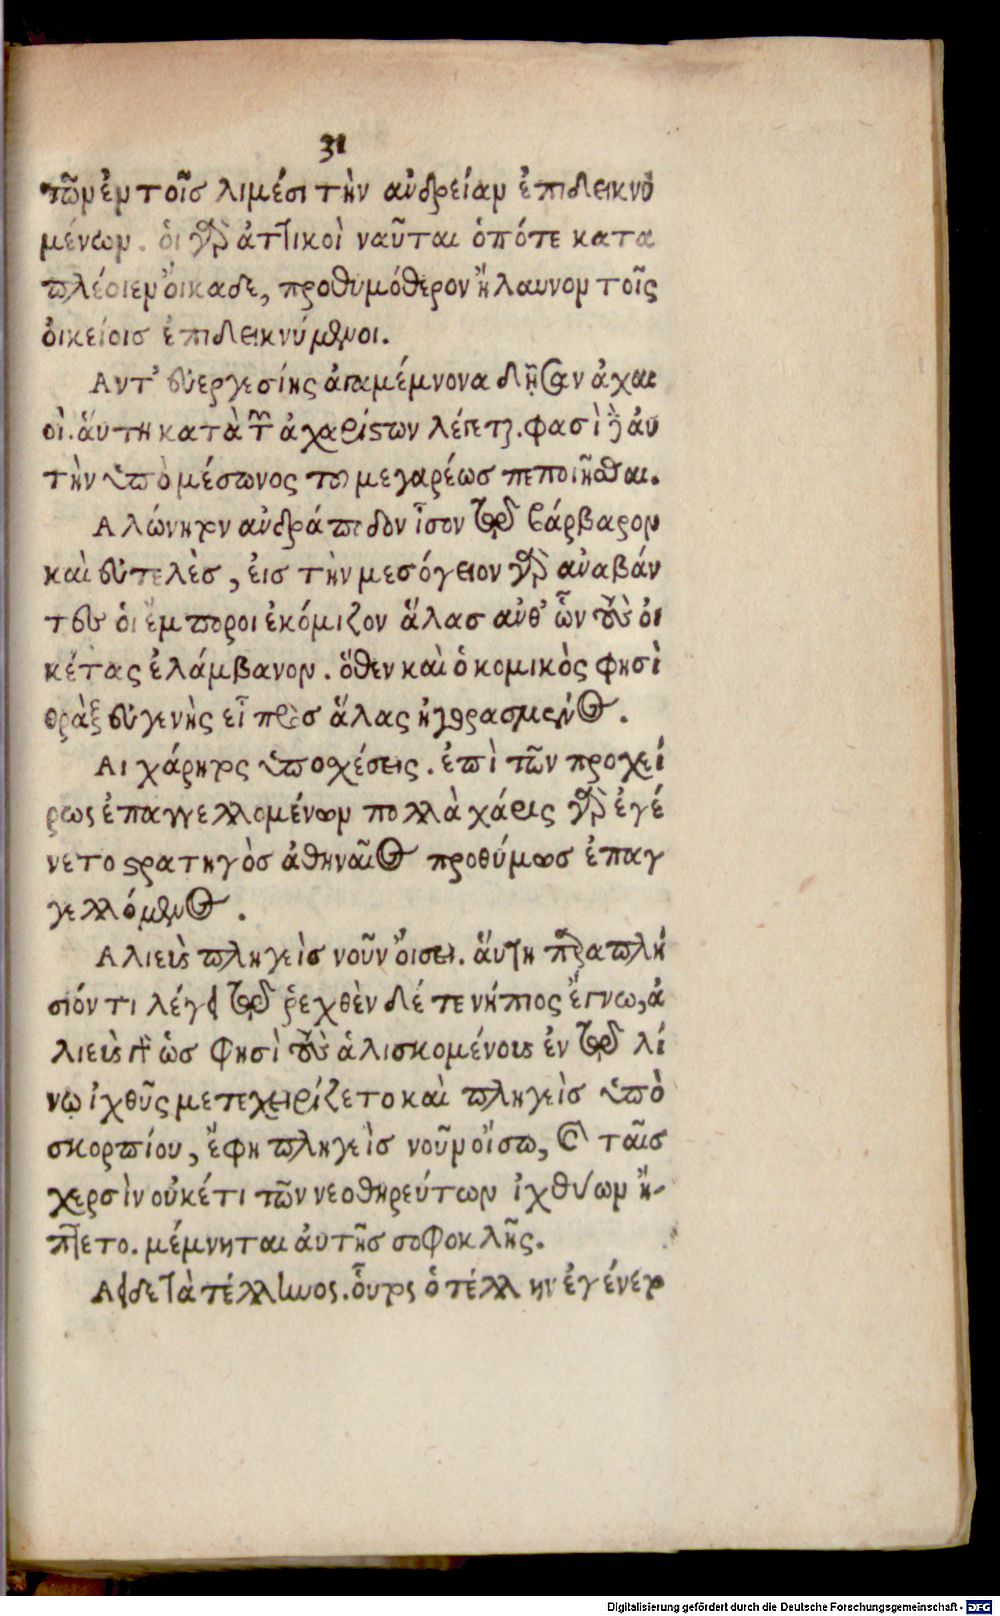 31
τῶν ἐν τοῖσ λιμέσι τὴν ἀνδρείαν ἐπιδεικνυ
μένων. ὁι γὰρ ἀττικοὶ ναῦται ὁπότε κατα
πλέοιεν ὄικαδε, προθυμότερον ἤλαυνον τοῖς
ὀικείοισ ἐπιδεικνύμενοι.
Αντ᾽ εὐεργεσίης ἀγαμέμνονα δῆσαν ἀχαι
οὶ. ἅυτη κατὰ τῶν ἀχαρίστων λέγεται. φασὶ δὲ ἀυ
τὴν ὑπὸ μέσωνος του μεγαρέωσ πεποιῆσθαι.
Αλώνητον ἀνδράποδον ἴσον τῷ βάρβαρον
καὶ εὐτελὲσ, ἐισ τὴν μεσόγειον γὰρ ἀναβάν
τες ὁι ἔμποροι ἐκόμιζον ἅλασ ἀνθ᾽ ὧν τοὺς ὀι
κέτας ἐλάμβανον. ὅθεν καὶ ὁ κομικὸς φησὶ
θρὰξ εὐγενὴς εἶ πρὸσ ἅλας ἠγορασμένος.
Αι χάρητος ὑποσχέσεις. ἐπὶ τῶν προχεί
ρως ἐπαγγελλομένων πολλὰ χάρις γὰρ ἐγέ
νετο στρατηγὸσ ἀθηναῖος προθύμωσ ἐπαγ
γελλόμενος.
Αλιεὺς πληγεὶσ νοῦν ὄισει. ἅυτη παραπλή
σιόν τι λέγει τῷ ῥεχθὲν δέ τε νήπιος ἔγνω, ἁ
λιεὺς γὰρ ὡσ φησὶ τοὺς ἁλισκομένους ἐν τῷ λί
νῳ ἰχθῦς μετεχειρίζετο καὶ πληγεὶσ ὑπὸ
σκορπίου, ἔφη πληγεὶσ νοῦν ὄισω, καὶ ταῖσ
χερσὶν οὐκέτι τῶν νεοθηρεύτων ἰχθύων ἥ-
πτετο. μέμνηται ἀυτῆσ σοφοκλῆς.
Αειδε τὰ τέλληνος. ὅυτος ὁ τέλλην ἐγένετο
Digitalisierung gefördert durch die Deutsche Forschungsgemeinschaft - DFG